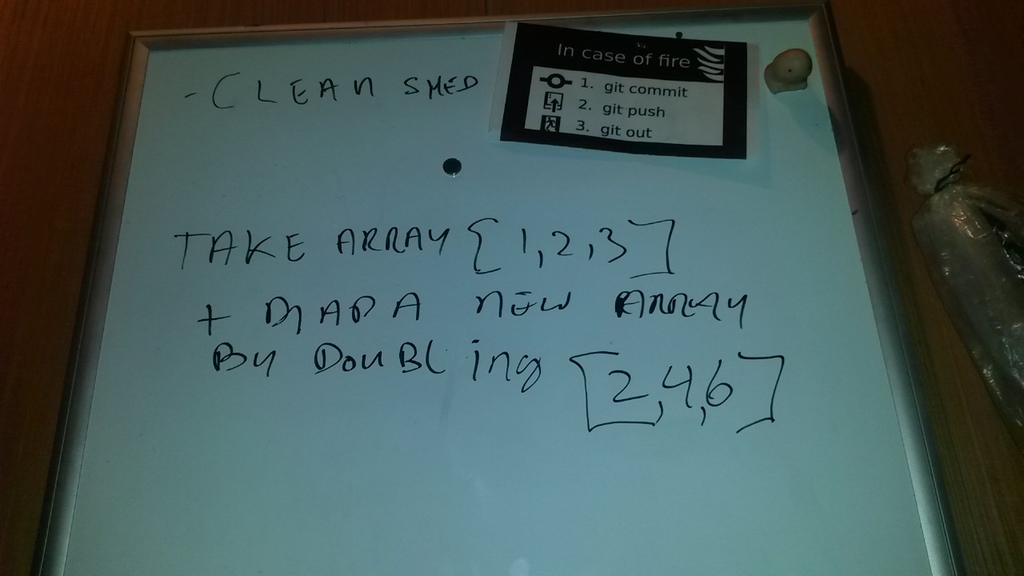 - CLEAN SHED
In case of fire
1. git commit
2. git push
3. git out
TAKE ARRAY [1,2,3]
+ MAP A NEW ARRAY
By DOUBLing [2,4,6]